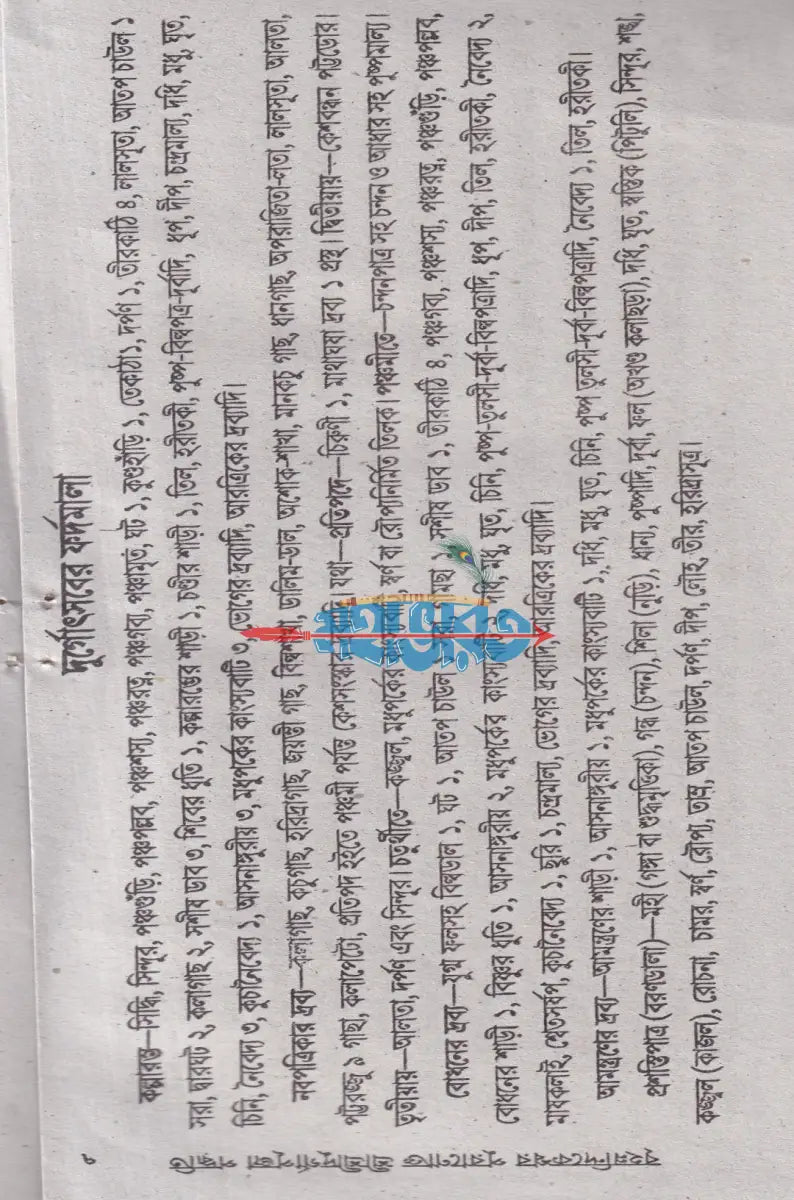 ৮
বৃহন্নন্দিকেশ্বর পুরাণোক্ত শ্রীশ্রীদুর্গাপূজা পদ্ধতি
দুর্গোৎসবের ফর্দমালা
কল্পারম্ভ—সিদ্ধি, সিন্দূর, পঞ্চগুঁড়ি, পঞ্চপল্লব, পঞ্চশস্য, পঞ্চরত্ন, পঞ্চগব্য, পঞ্চামৃত, ঘট ১, কুণ্ডহাঁড়ি ১, তেকাঠা১, দর্পণ ১, তীরকাঠি ৪, লালসূতা, আতপ চাউল ১
সরা, দ্বারঘট ২, কলাগাছ ২, সশীষ ডাব ৩, শিবের ধূতি ১, কল্পারম্ভের শাড়ী ১, চণ্ডীর শাড়ী ১, তিল, হরীতকী, পুষ্প-বিল্বপত্র-দূর্ব্বাদি, ধূপ, দীপ, চন্দ্রমাল্য, দধি, মধু, ঘৃত,
চিনি, নৈবেদ্য ৩, কুচনৈবেদ্য ১, আসনাঙ্গুরীয় ৩, মধুপর্কের কাংস্যবাটি ৩, ভোগের দ্রব্যাদি, আরত্রিকের দ্রব্যাদি।
নবপত্রিকার দ্রব্য—কলাগাছ, কচুগাছ, হরিদ্রাগাছ, জয়ন্তী গাছ, বিল্বশাখা, ডালিম-ডাল, অশোক-শাখা, মানকচু গাছ, ধানগাছ, অপরাজিতা-লতা, লালসূতা, আলতা,
পট্টরজ্জু ৯ গাছা, কলাপেটো, প্রতিপদ হইতে পঞ্চমী পর্যন্ত কেশসংস্কার যথা—প্রতিপদে—চিরুণী ১, মাথাঘষা দ্রব্য ১ প্রস্থ। দ্বিতীয়ায়—কেশবন্ধন পট্টডোর।
তৃতীয়ায়—আলতা, দর্পণ এবং সিন্দূর। চতুর্থীতে—কজ্জল, মধুপর্কের কাংস্যবাটি, স্বর্ণ বা রৌপ্যনির্ম্মিত তিলক। পঞ্চমীতে—চন্দনপাত্র সহ চন্দন ও আধার সহ পুষ্পমাল্য।
বোধনের দ্রব্য—যুগ্ম ফলসহ বিল্বডাল ১, ঘট ১, আতপ চাউল গামছা ১, সশীষ ডাব ১, তীরকাঠি ৪, পঞ্চগব্য, পঞ্চশস্য, পঞ্চরত্ন, পঞ্চগুঁড়ি, পঞ্চপল্লব,
বোধনের শাড়ী ১, বিষ্ণুর ধূতি ১, আসনাঙ্গুরীয় ২, মধুপর্কের কাংস্যবাটি দধি, মধু, ঘৃত, চিনি, পুষ্প-তুলসী-দূর্ব্বা-বিল্বপত্রাদি, ধূপ, দীপ, তিল, হরীতকী, নৈবেদ্য ২,
মাষকলাই, শ্বেতসর্ষপ, কুচনৈবেদ্য ১, ছুরি ১, চন্দ্রমাল্য, ভোগের দ্রব্যাদি, আরত্রিকের দ্রব্যাদি।
আমন্ত্রণের দ্রব্য—আমন্ত্রণের শাড়ী ১, আসনাঙ্গুরীয় ১, মধুপর্কের কাংস্যবাটি ১, দধি, মধু, ঘৃত, চিনি, পুষ্প তুলসী-দূর্ব্বা-বিল্বপত্রাদি, নৈবেদ্য ১, তিল, হরীতকী।
প্রশস্তিপাত্র (বরণডালা)—মহী (গঙ্গা বা শুদ্ধমৃত্তিকা), গন্ধ (চন্দন), শিলা (নুড়ি), ধান্য, পুষ্পাদি, দূর্ব্বা, ফল (অখণ্ড কলাছড়া), দধি, ঘৃত, স্বস্তিক (পিটুলি), সিন্দূর, শঙ্খ,
কজ্জ্বল (কাজল), রোচনা, চামর, স্বর্ণ, রৌপ্য, তাম্র, আতপ চাউল, দর্পণ, দীপ, লৌহ, তীর, হরিদ্রাসূত্র।
মহাভারত